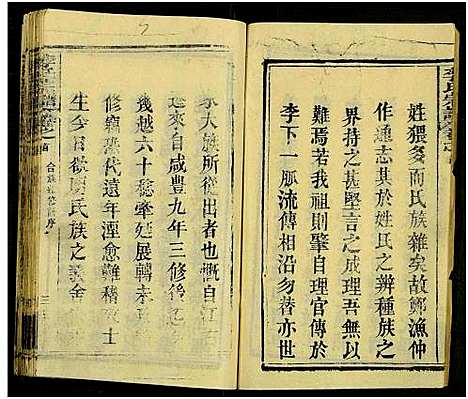 姓猥多而氏族雜矣故鄭漁仲
作通志其於姓氏之辨種族之
界持之甚堅言之成理吾無以
難焉若我祖則肇自理官傳於
李下一脈流傳相沿勿替亦世
家大族所從出者也慨自江右
遷來自咸豐九年三修後迄
後越六十稔牽延展轉未
修竊恐代遠年湮愈難稽
生今日欲明氏族之義舍